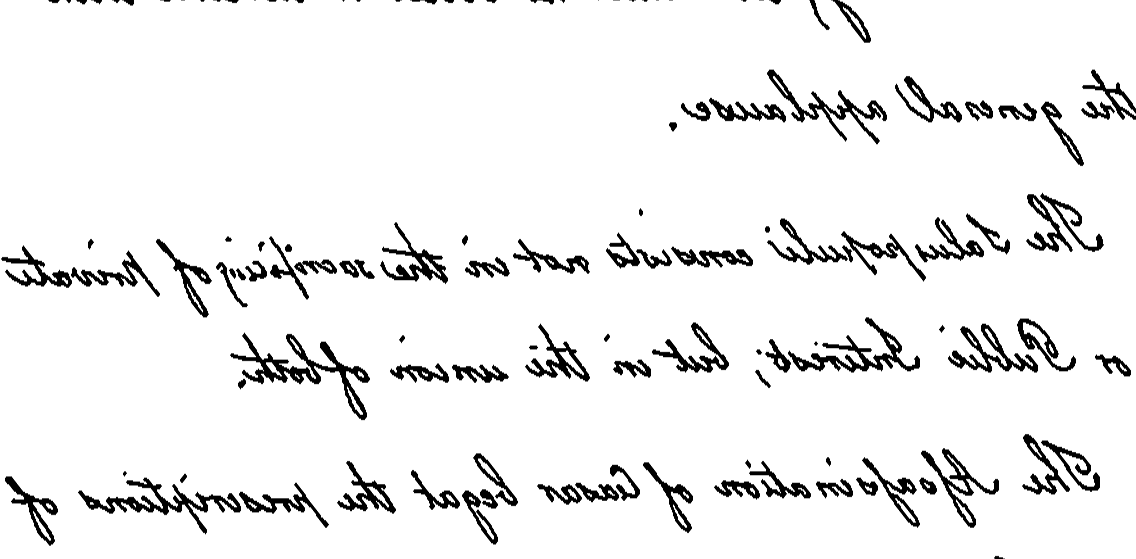 the general applause.
The Salus populi consists not in the sacrificing of private
or Public Interest; but in the union of both.
The Assassination of Ceasar begat the proscriptions of